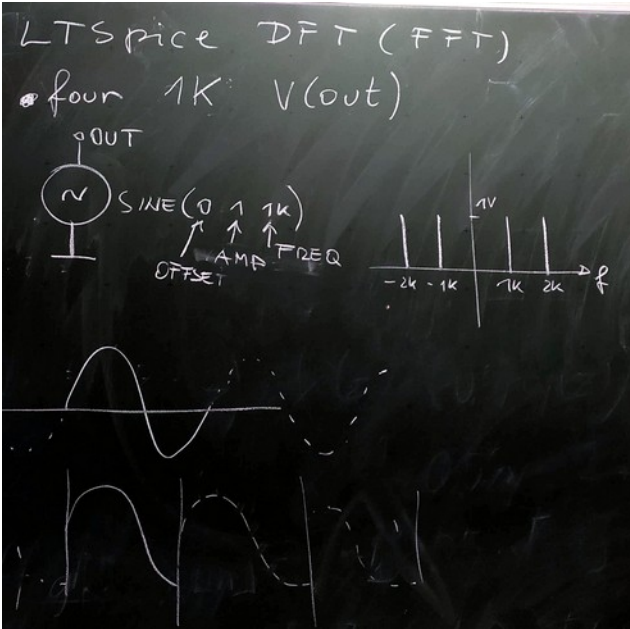 LTSpice DFT (FFT)
• four 1K V(out)
OUT
~
SINE(0 1 1K)
OFFSET
AMP
FREQ
1V
-2K -1K 1K 2K
f